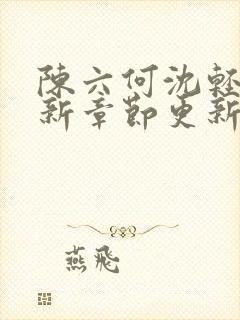 陳六何沈輕
新章節更新
燕飛